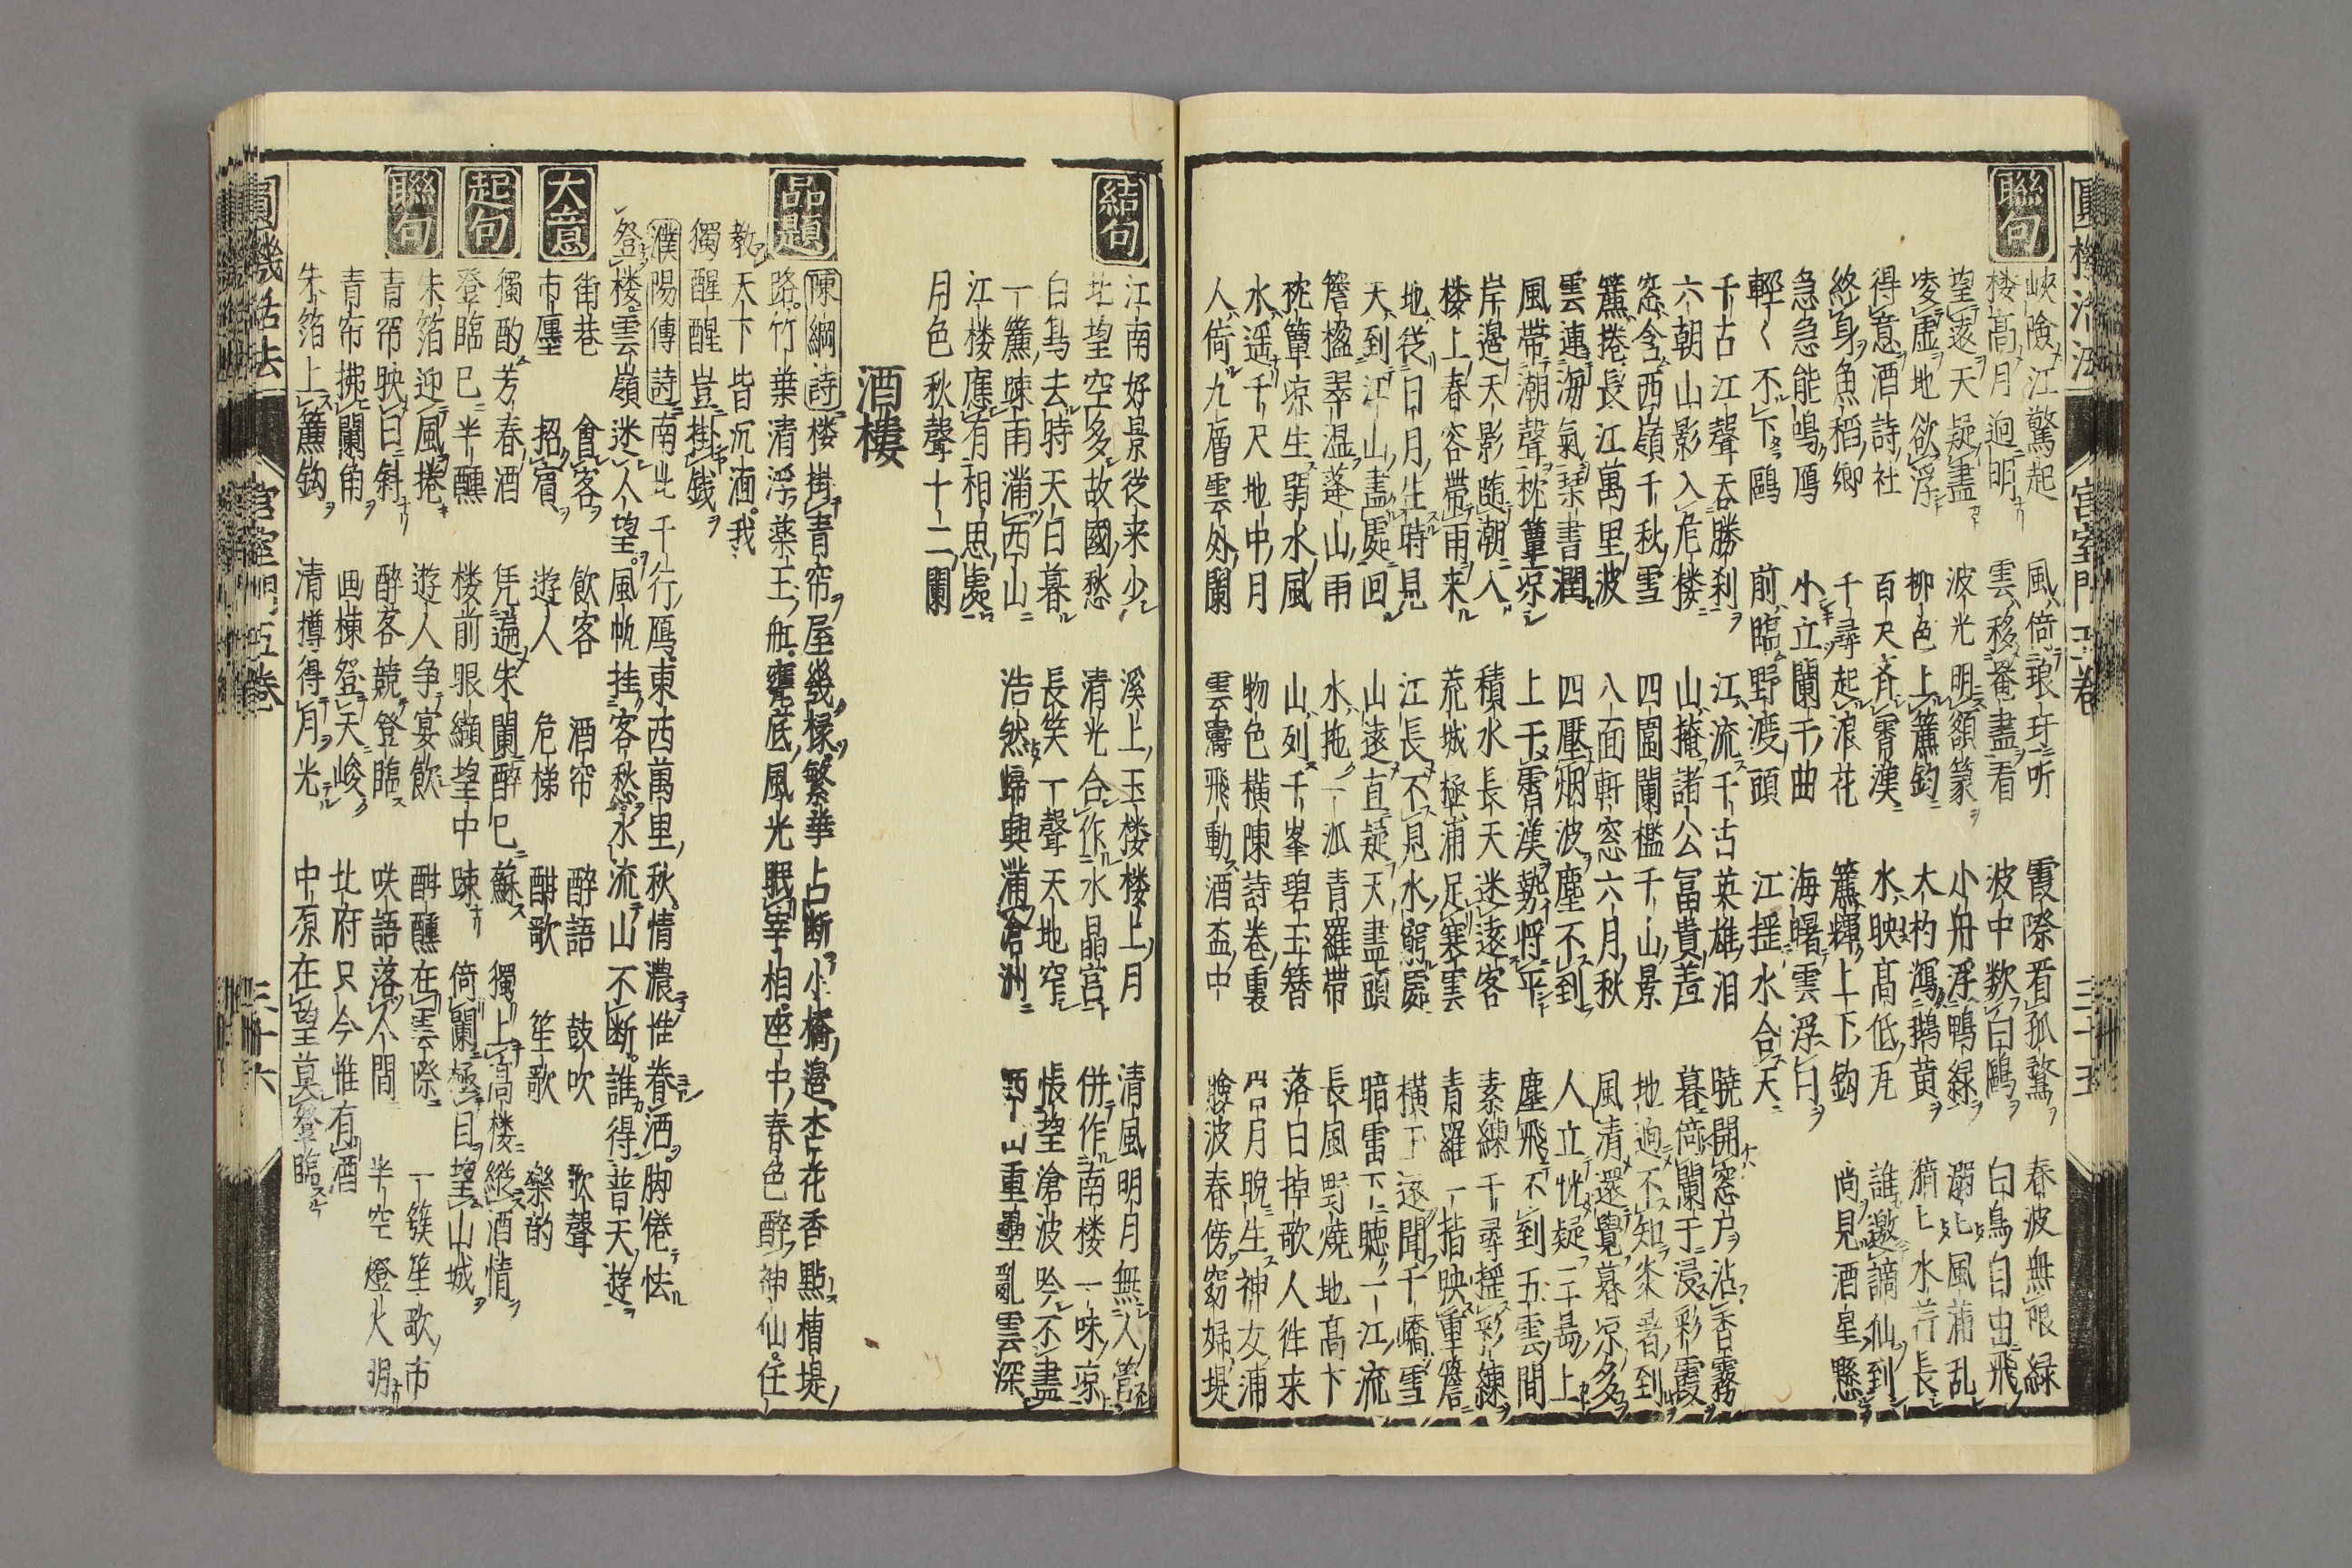 聯句
峽險江驚起 風倚琅玕听 霞際看孤鶩 春波無限緑
楼高月迥明 雲移菴盡看 波中数白鷗 白鳥自由飛
望遠天疑盡 波光明額篆 小舟浮鴨緑 溺〻風蒲乱
凌虚地欲浮 柳色上簾鈎 大杓瀉鵝黄 猗〻水荇長
得意酒詩社 百尺斉霄漢 水映高低瓦 誰邀謫仙到
終身魚稻郷 千尋起浪花 簾輝上下鈎 尚見酒星懸
急急能鳴鴈 小立闌干曲 海曙雲浮白
輕〻不下鷗 前臨野渡頭 江揺水合天
千古江聲吞勝刹 江流千古英雄泪 曉開窓户沾香霧
六朝山影入危楼 山掩諸公冨貴羞 暮倚闌干浸彩霞
窓含西嶺千秋雪 四圍闌檻千山景 地迥不知炎暑到
簾捲長江萬里波 八面軒窓六月秋 風清還覺暮凉多
雲連海氣琹書潤 四壓烟波塵不到 人立恍疑三島上
風帶潮聲枕簟凉 上干霄漢勢将平 塵飛不到五雲間
岸邉天影随潮入 積水長天迷遠客 素練千尋揺彩練
楼上春容帶雨来 荒城極浦足寒雲 青羅一指映重簷
地従日月生時見 江長不見水窮処 橫下遠聞千嶠雪
天到江山盡處回 山遠直疑天盡頭 暗雷下聴一江流
簷楹翠温蓬山雨 水拖一派青羅帶 長風野燒地高下
枕簟凉生弱水風 山列千峯碧玉簪 落日棹歌人徃来
水遥千尺地中月 物色橫陳詩卷裏 岩月晩生神女浦
人倚九層雲外闌 雲霱飛動酒盃中 瞼波春傍窈婦堤
結句
江南好景従来少 溪上玉楼楼上月 清風明月無人管
北望空多故國愁 清光合作水晶宫 併作南楼一味凉
白鳥去時天白暮 長笑一聲天地窄 悵望滄波吟不盡
一簾踈雨滿西山 浩然歸興滿滄洲 西山重疊亂雲深
江楼應有相思處
月色秋聲十二闌
酒樓
品題
陳綱詩 楼掛青帘屋幾椽繁華占断小橋邉杏花香點槽堤
路竹葉清浮薬玉舡甕底風光眠宰相座中春色醉神仙任
教天下皆沉湎我
獨醒醒豈掛銭
濮陽傳詩 南北千行鴈東西萬里秋情濃惟眷洒脚倦怯
登楼雲嶺迷人望風帆挂客愁水流山不断誰得普天遊
大意
街巷 會客 飲客 酒帘 醉語 鼓吹 歌聲
市廛 招賓 遊人 危梯 酣歌 笙歌 樂韵
起句
獨酌芳春酒 凭遍朱闌醉已蘇 獨上高楼縱酒情
登臨巳半醺 楼前眼纈望中踈 倚闌極目望山城
聯句
朱箔迎風捲 遊人争宴飲 酣醺在雲際 一簇笙歌市
青帘映日斜 醉客競登臨 咲語落人間 半空燈火明
青帘拂闌角 画棟登天峻 北府只今惟有酒
朱箔上簾鈎 清樽得月光 中原在望莫登臨
圓機活法 宫室門五卷 三十五
圓機活法 宫室門五卷 三十六